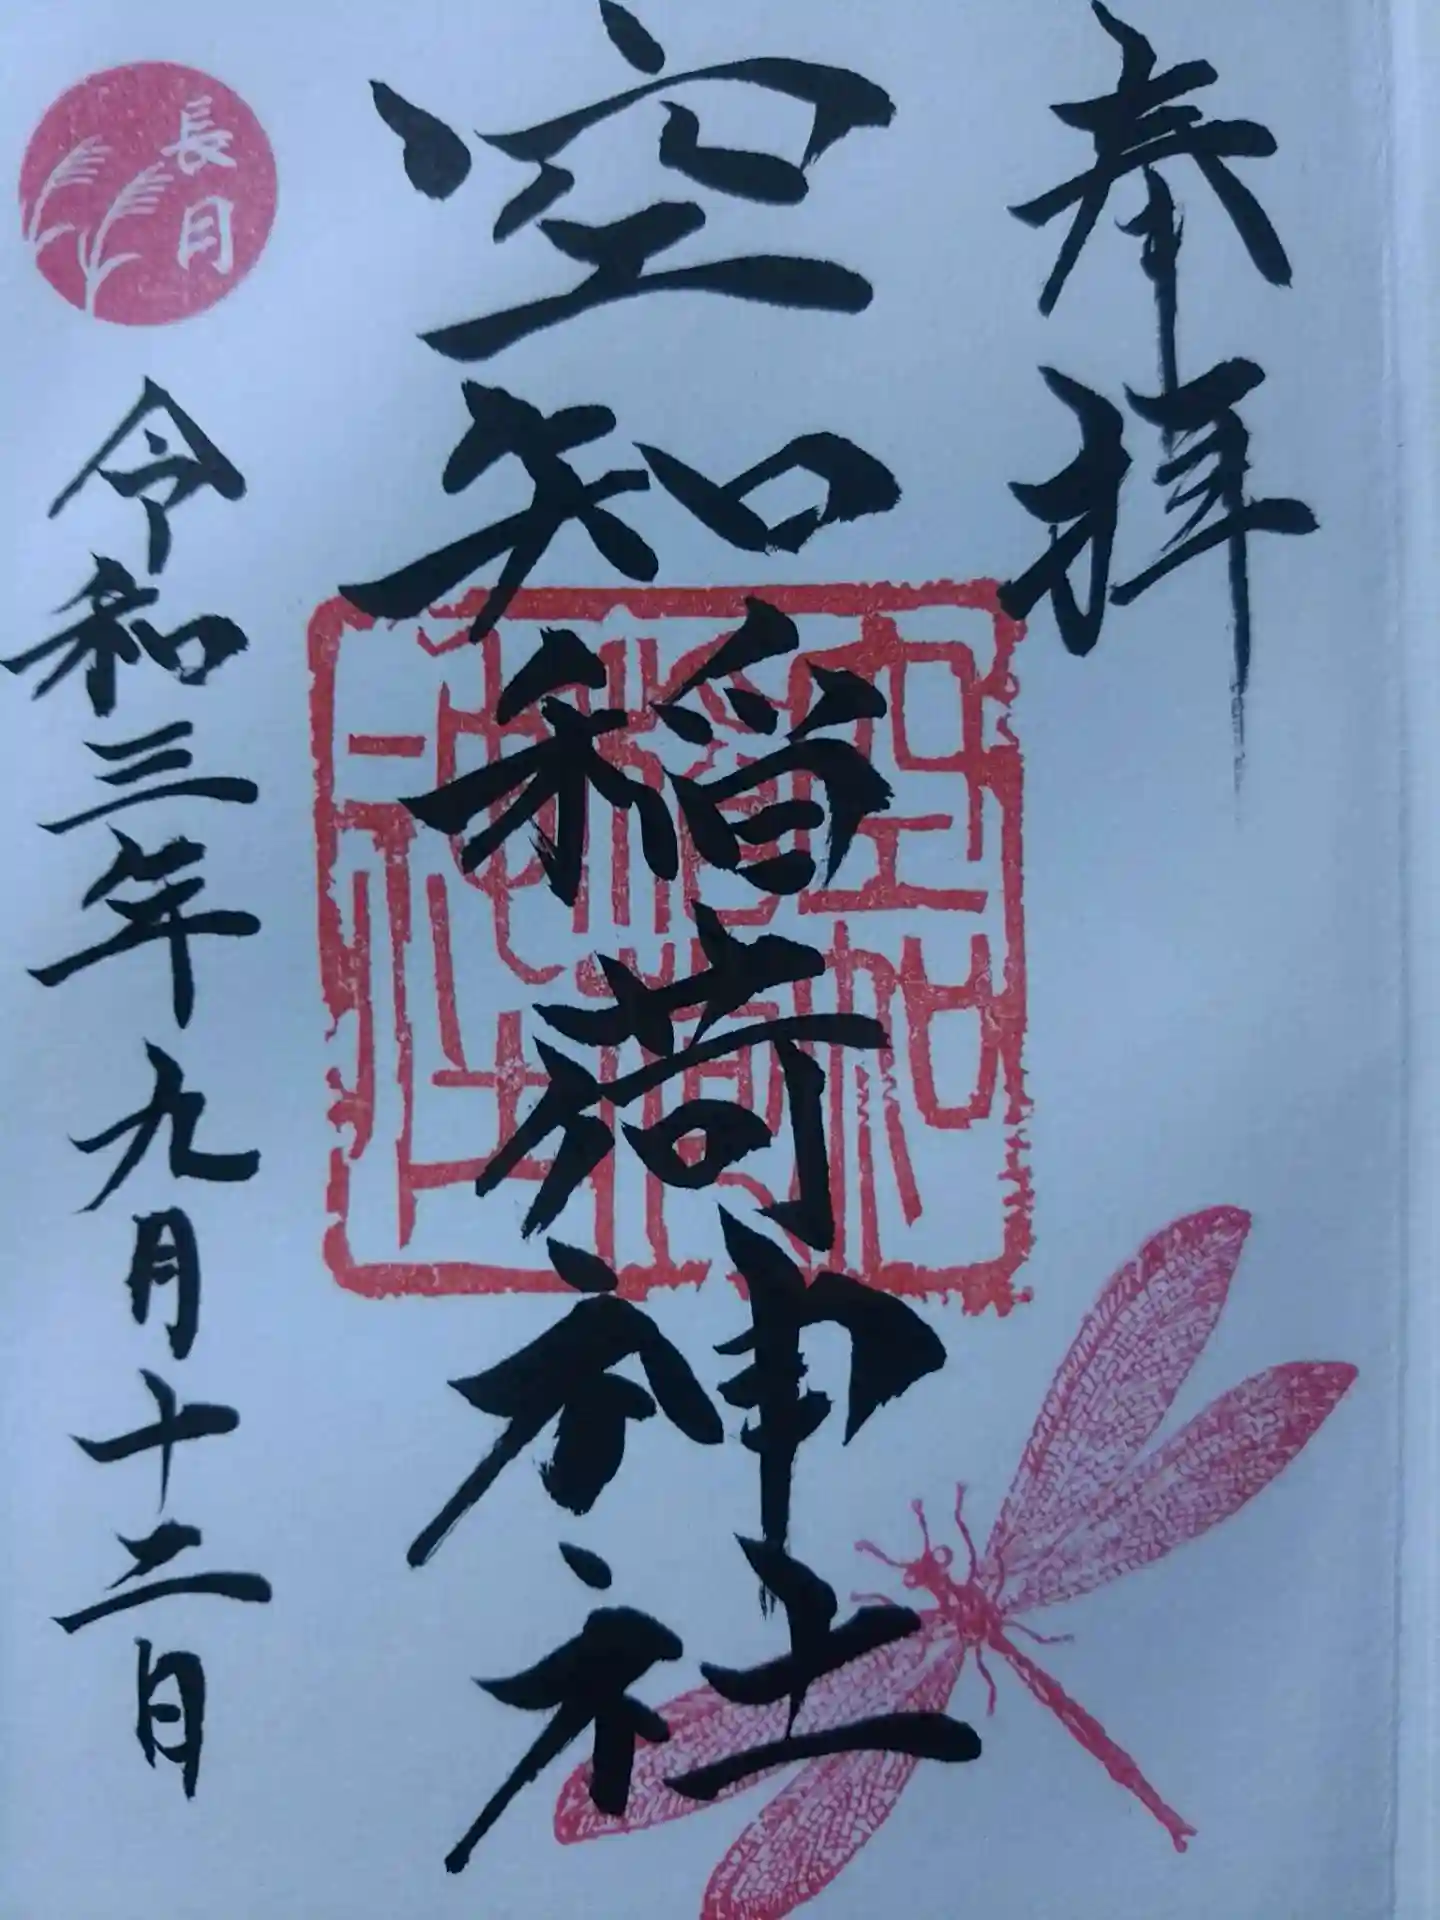 奉拝
空知稲荷神社
空知
稲荷
神社
長月
令和三年九月十二日